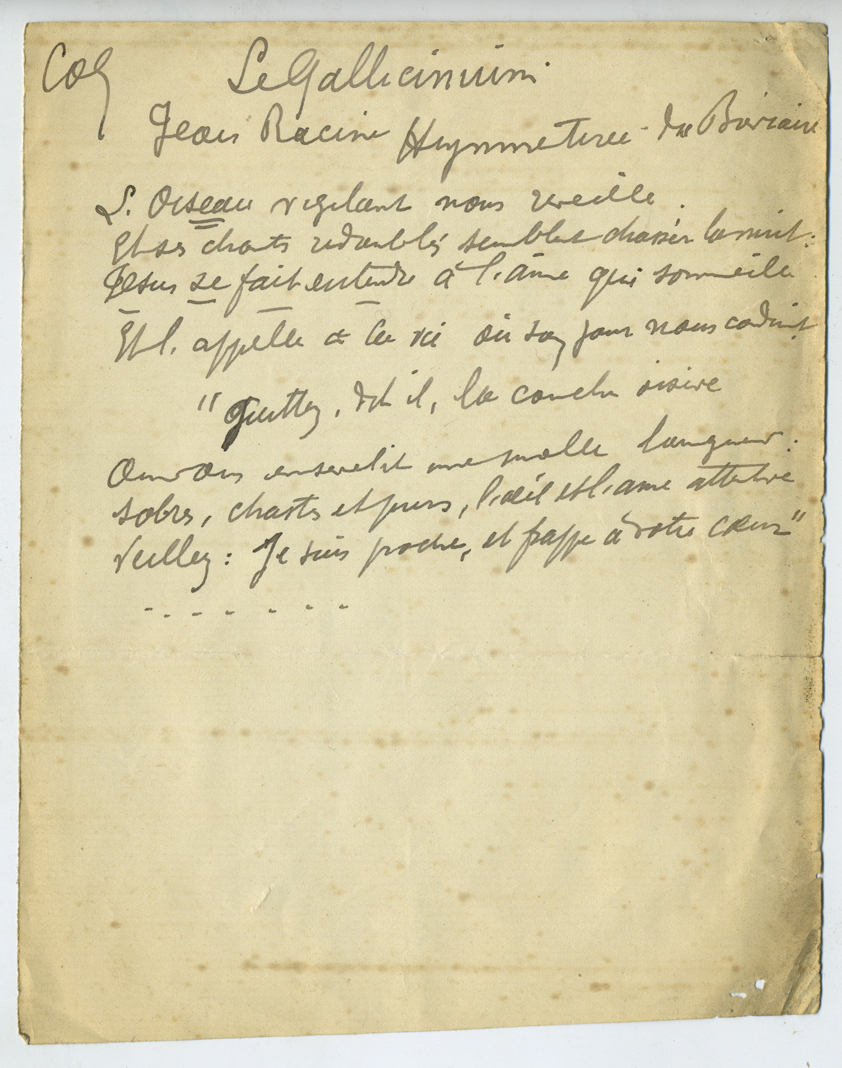 Coq
Le Gallicinium
Jean Racine Hymne tirée du Bréviaire
L'Oiseau vigilant nous réveille
Et ses chants redoublés semblent chasser la nuit :
Jésus se fait entendre à l'âme qui sommeille
Et l'appelle à la vie où son jour nous conduit
"Quittez, dit il, la couche oisive
Où vous ensevelit une molle langueur :
Sobres, chastes et purs, l'œil et l'âme attentive
Veillez : Je suis proche, et frappe à votre cœur"
- - - - - - -